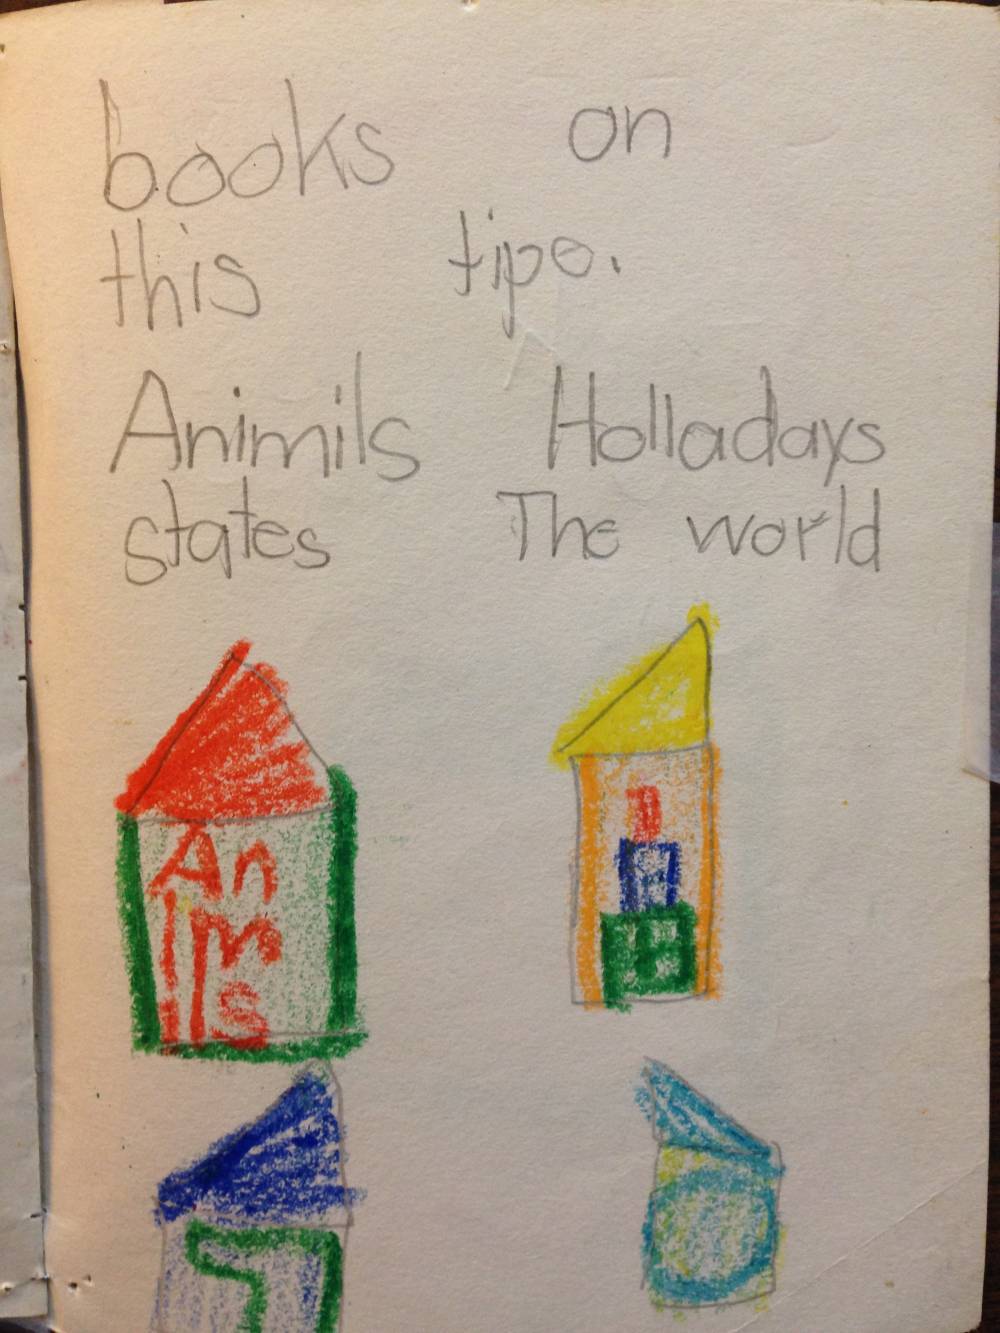 books on
this tipe.
Animils Holladays
states The world
An
im
ils